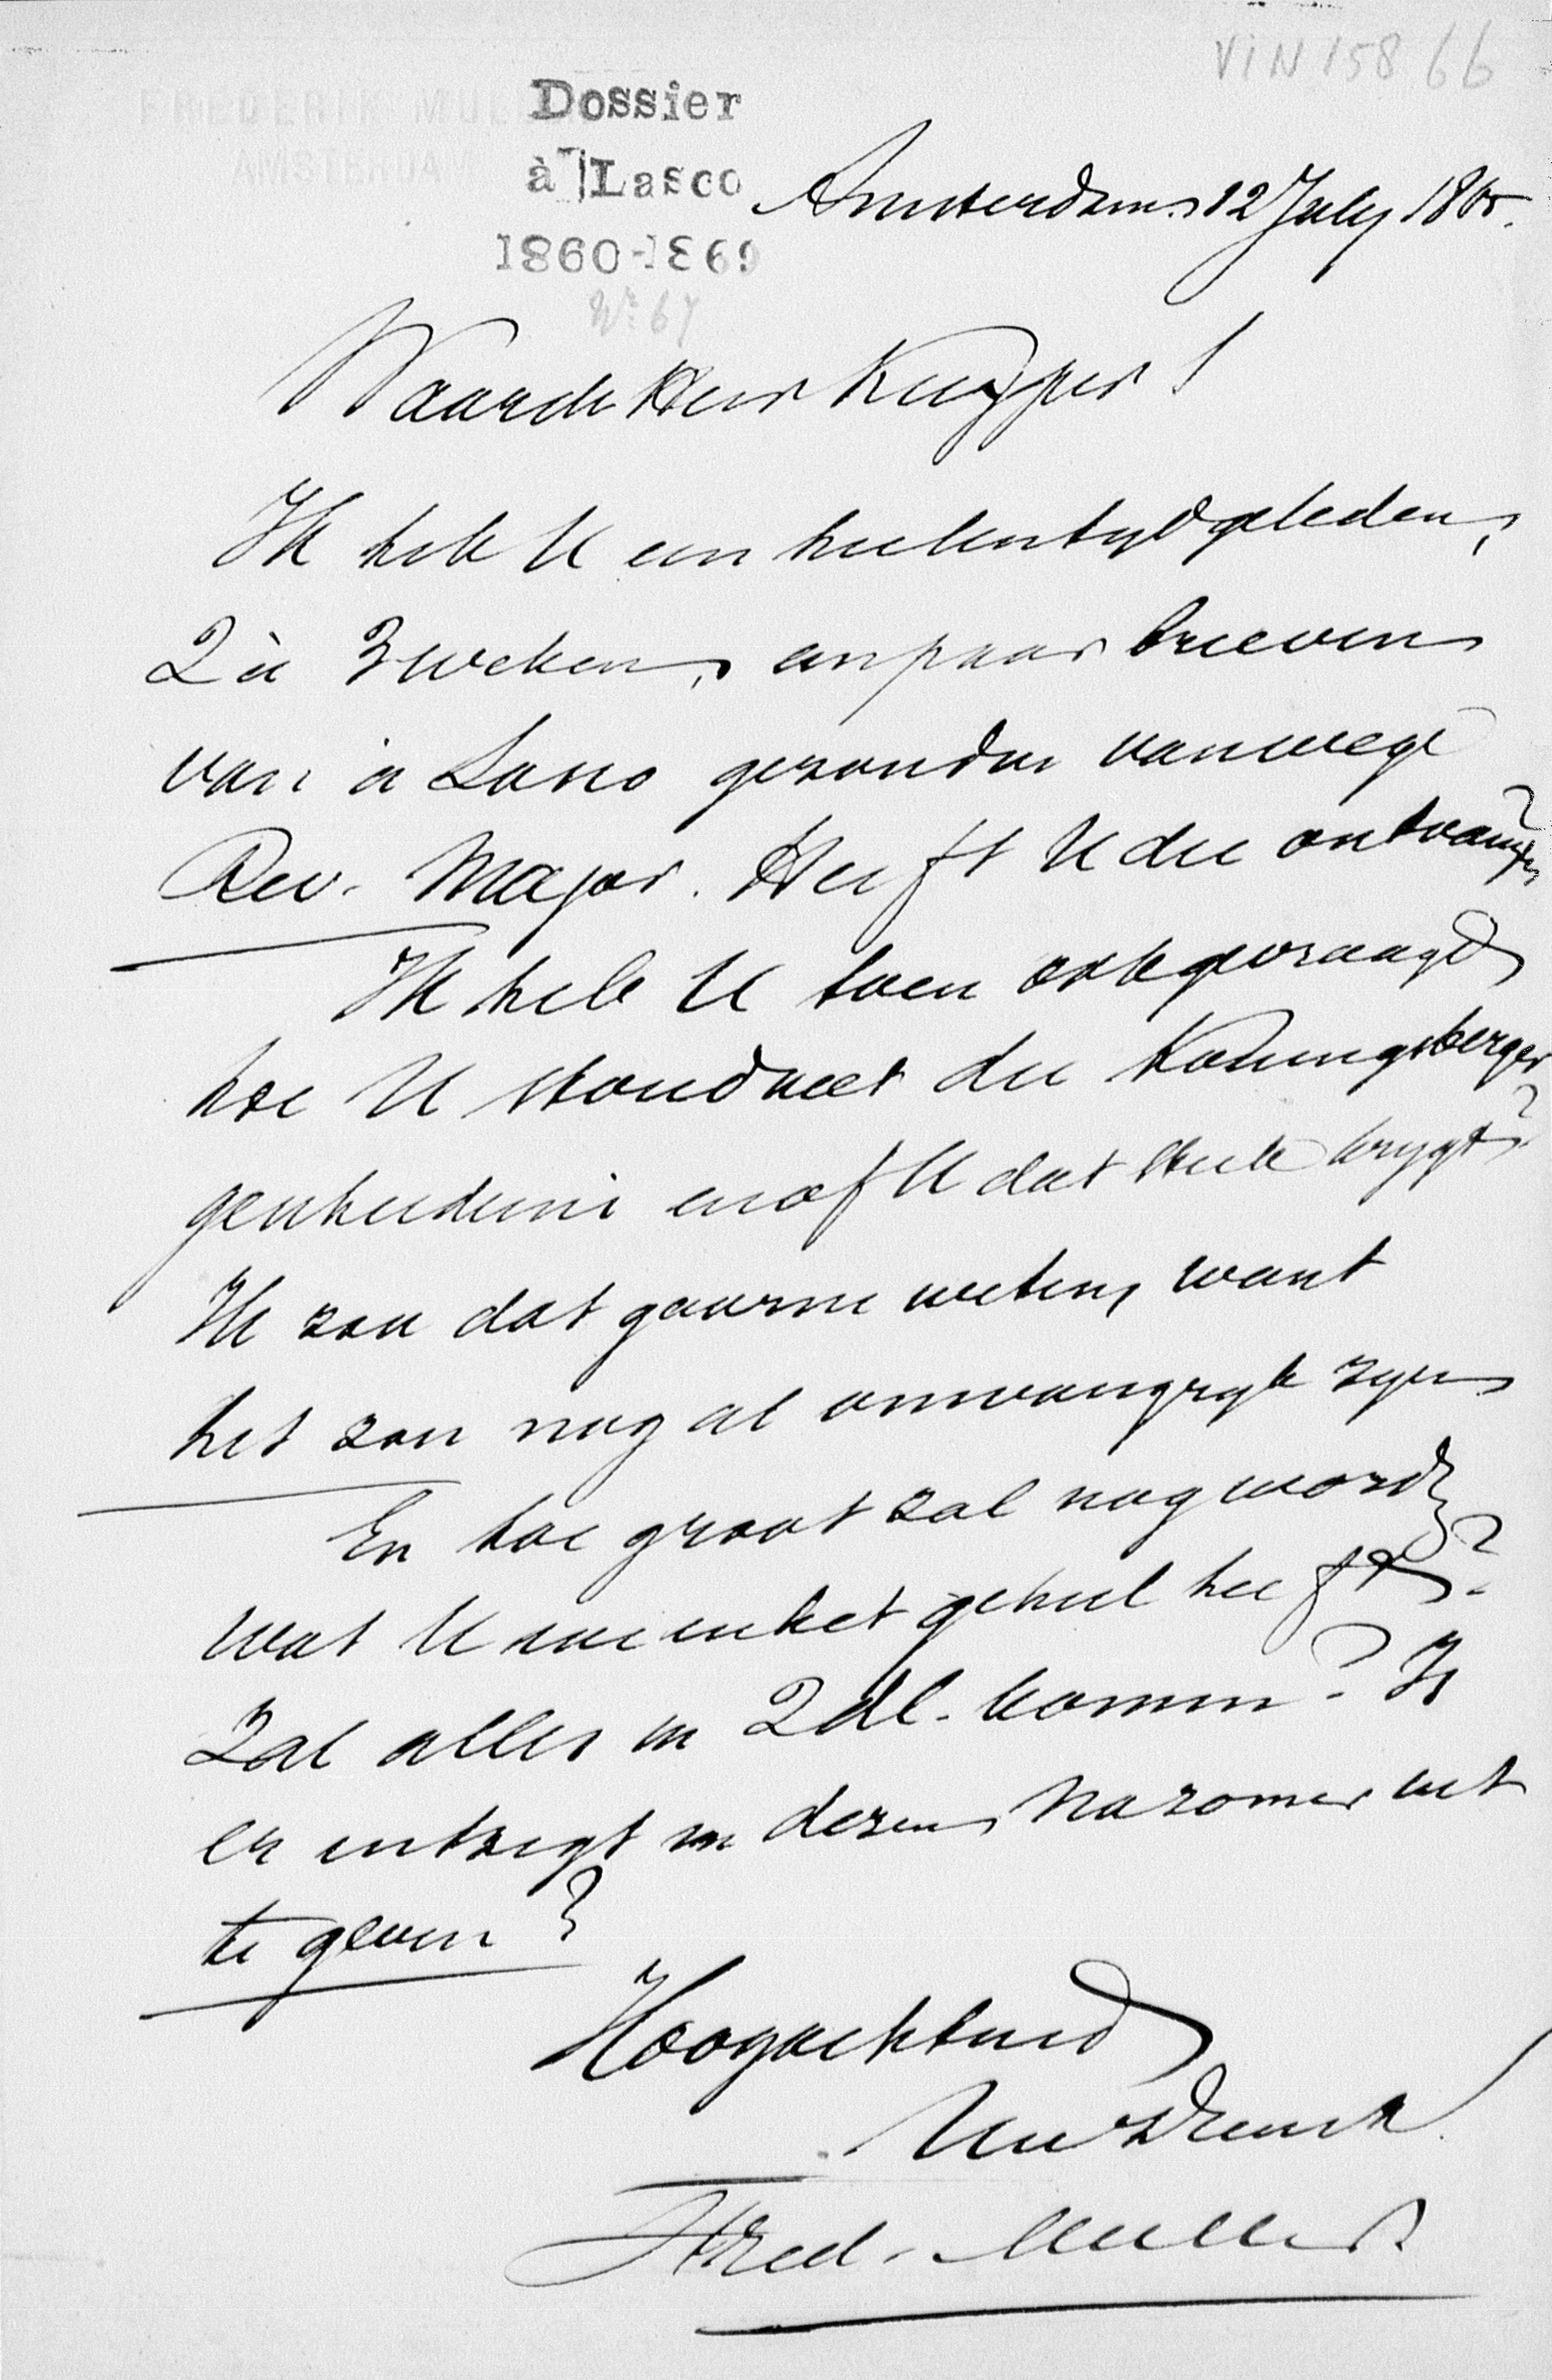 VIN 158 66
FREDERIK MUL
AMSTERDAM
Dossier
à Lasco
1860-1869
No 67
Amsterdam 12 July 1865.
Waarde Heer Kuyper!
Ik heb U een heelen tyd geleden,
2 à 3 weken, een paar brieven
van à Lasco gezonden vanwege
Rev. Major. Heeft U die ontvangen?
Ik heb U toen ook gevraagd
hoe U stond met die Koningsberger
geschiedenis en of U dat stuk krygt?
Ik zou dat gaarne weten, want
het zou nog al omvangryk zyn
En hoe groot zal nog worden
wat U nu in het geheel heeft?
Zal alles in 2 dl. komen? Is
er uitzigt om dezen Nazomer uit
te geven?
Hoogachtend
Uw Dienstw.
Fred. Muller